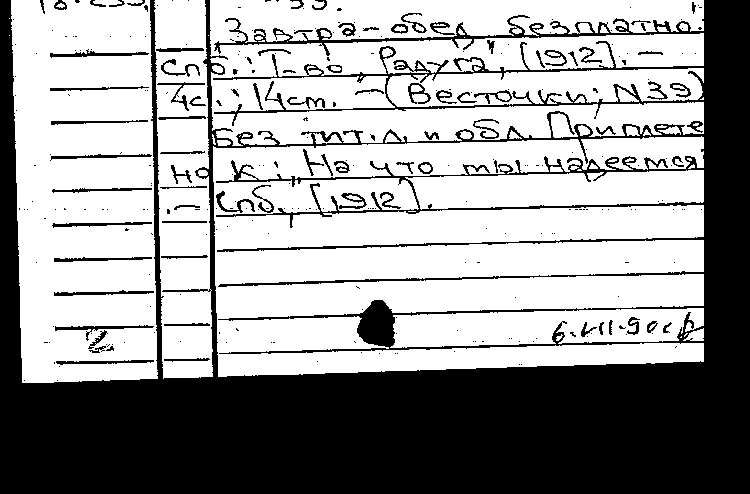 Завтра-обед безплатно."
Спб.: Т-во „Радуга", [1912]. —
4с.; 14ст. — (Весточки; N39)
Без тит.л. и обл. Приплете
но к: „На что ты надеемся"
.— Спб., [1912].
2